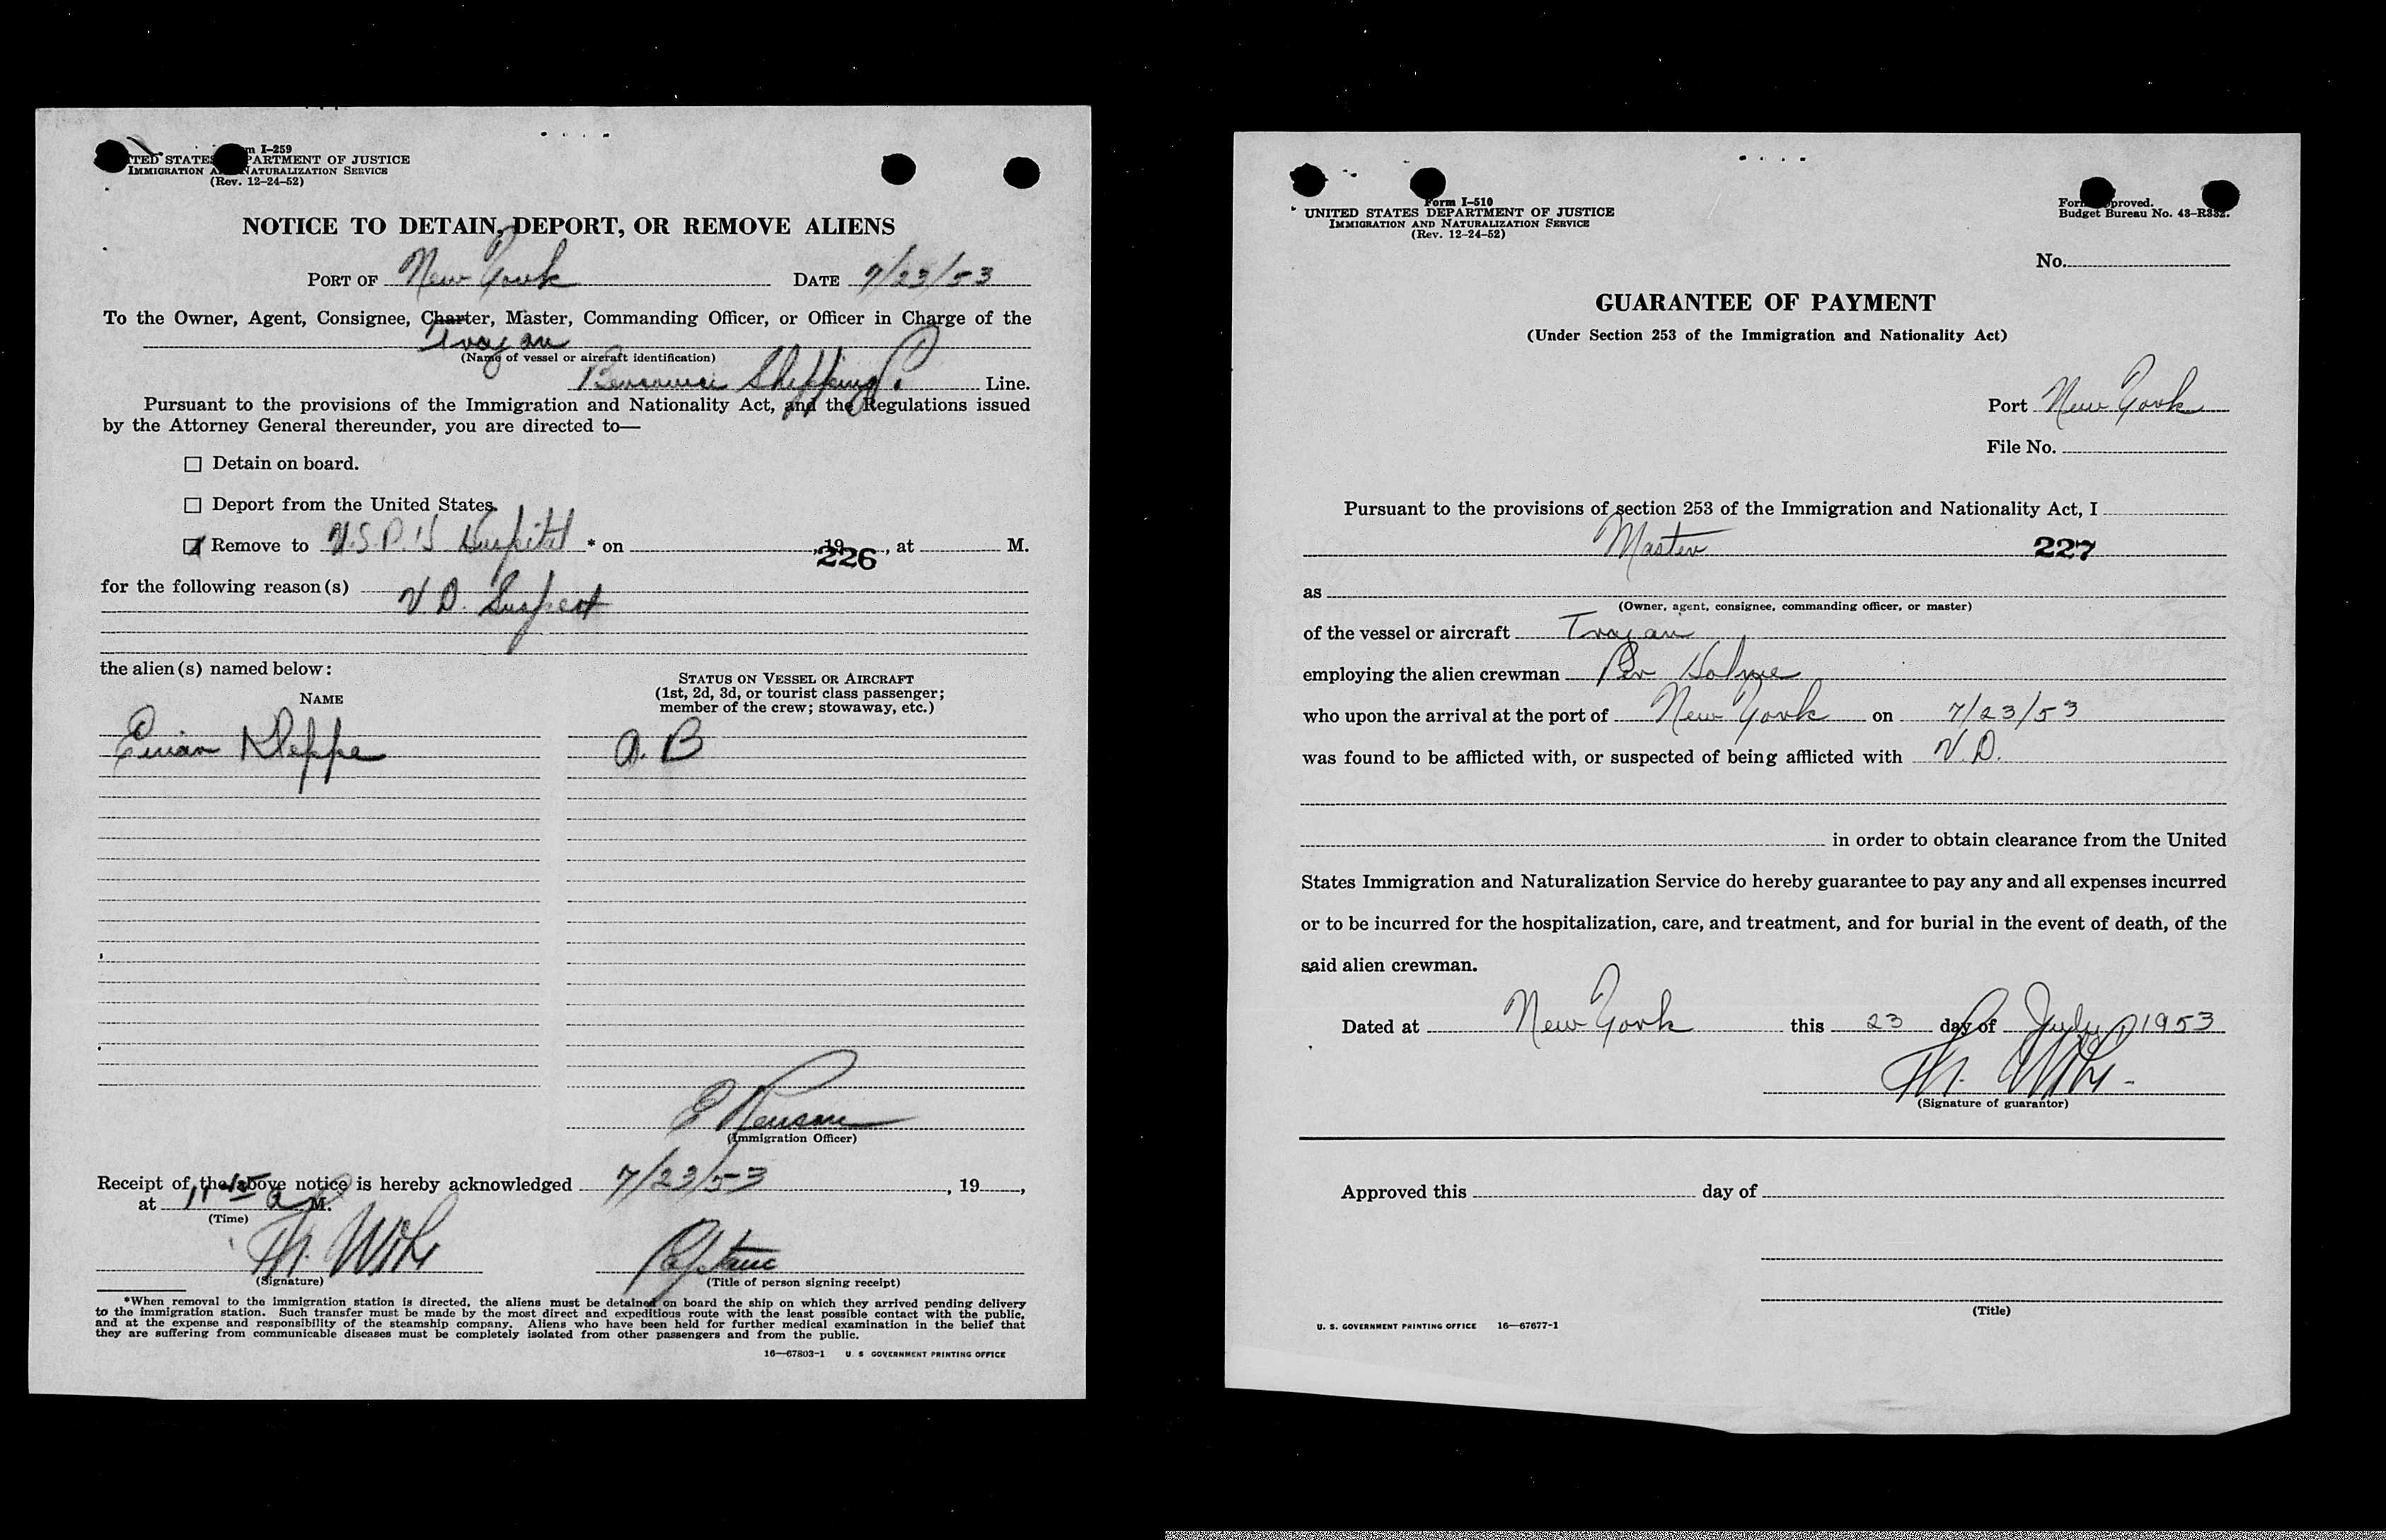 Form I-259
UNITED STATES DEPARTMENT OF JUSTICE
IMMIGRATION AND NATURALIZATION SERVICE
(Rev. 12-24-52)
NOTICE TO DETAIN, DEPORT, OR REMOVE ALIENS
PORT OF New York DATE 7/23/53
To the Owner, Agent, Consignee, Charter, Master, Commanding Officer, or Officer in Charge of the
Trojan
(Name of vessel or aircraft identification)
Shipping Line.
Pursuant to the provisions of the Immigration and Nationality Act, and the Regulations issued
by the Attorney General thereunder, you are directed to—
☐ Detain on board.
☐ Deport from the United States.
☒ Remove to U.S.P.H Hospital * on , 19 , at M.
226
for the following reason(s)
V.D. Suspect
the alien(s) named below:
NAME
STATUS ON VESSEL OR AIRCRAFT
(1st, 2d, 3d, or tourist class passenger;
member of the crew; stowaway, etc.)
Kleppe A.B
(Immigration Officer)
Receipt of the above notice is hereby acknowledged 7/23/53 , 19 ,
at 11 15 a M.
(Time)
Captain
(Signature) (Title of person signing receipt)
*When removal to the immigration station is directed, the aliens must be detained on board the ship on which they arrived pending delivery
to the immigration station. Such transfer must be made by the most direct and expeditious route with the least possible contact with the public,
and at the expense and responsibility of the steamship company. Aliens who have been held for further medical examination in the belief that
they are suffering from communicable diseases must be completely isolated from other passengers and from the public.
16—67803-1 U. S. GOVERNMENT PRINTING OFFICE
Form I-510
UNITED STATES DEPARTMENT OF JUSTICE
IMMIGRATION AND NATURALIZATION SERVICE
(Rev. 12-24-52)
Form approved.
Budget Bureau No. 43-R332.
No.
GUARANTEE OF PAYMENT
(Under Section 253 of the Immigration and Nationality Act)
Port New York
File No.
Pursuant to the provisions of section 253 of the Immigration and Nationality Act, I
Master 227
as
(Owner, agent, consignee, commanding officer, or master)
of the vessel or aircraft Trojan
employing the alien crewman Per Holme
who upon the arrival at the port of New York on 7/23/53
was found to be afflicted with, or suspected of being afflicted with V.D.
in order to obtain clearance from the United
States Immigration and Naturalization Service do hereby guarantee to pay any and all expenses incurred
or to be incurred for the hospitalization, care, and treatment, and for burial in the event of death, of the
said alien crewman.
Dated at New York this 23 day of July 1953
(Signature of guarantor)
Approved this day of
(Title)
U. S. GOVERNMENT PRINTING OFFICE 16—67677-1